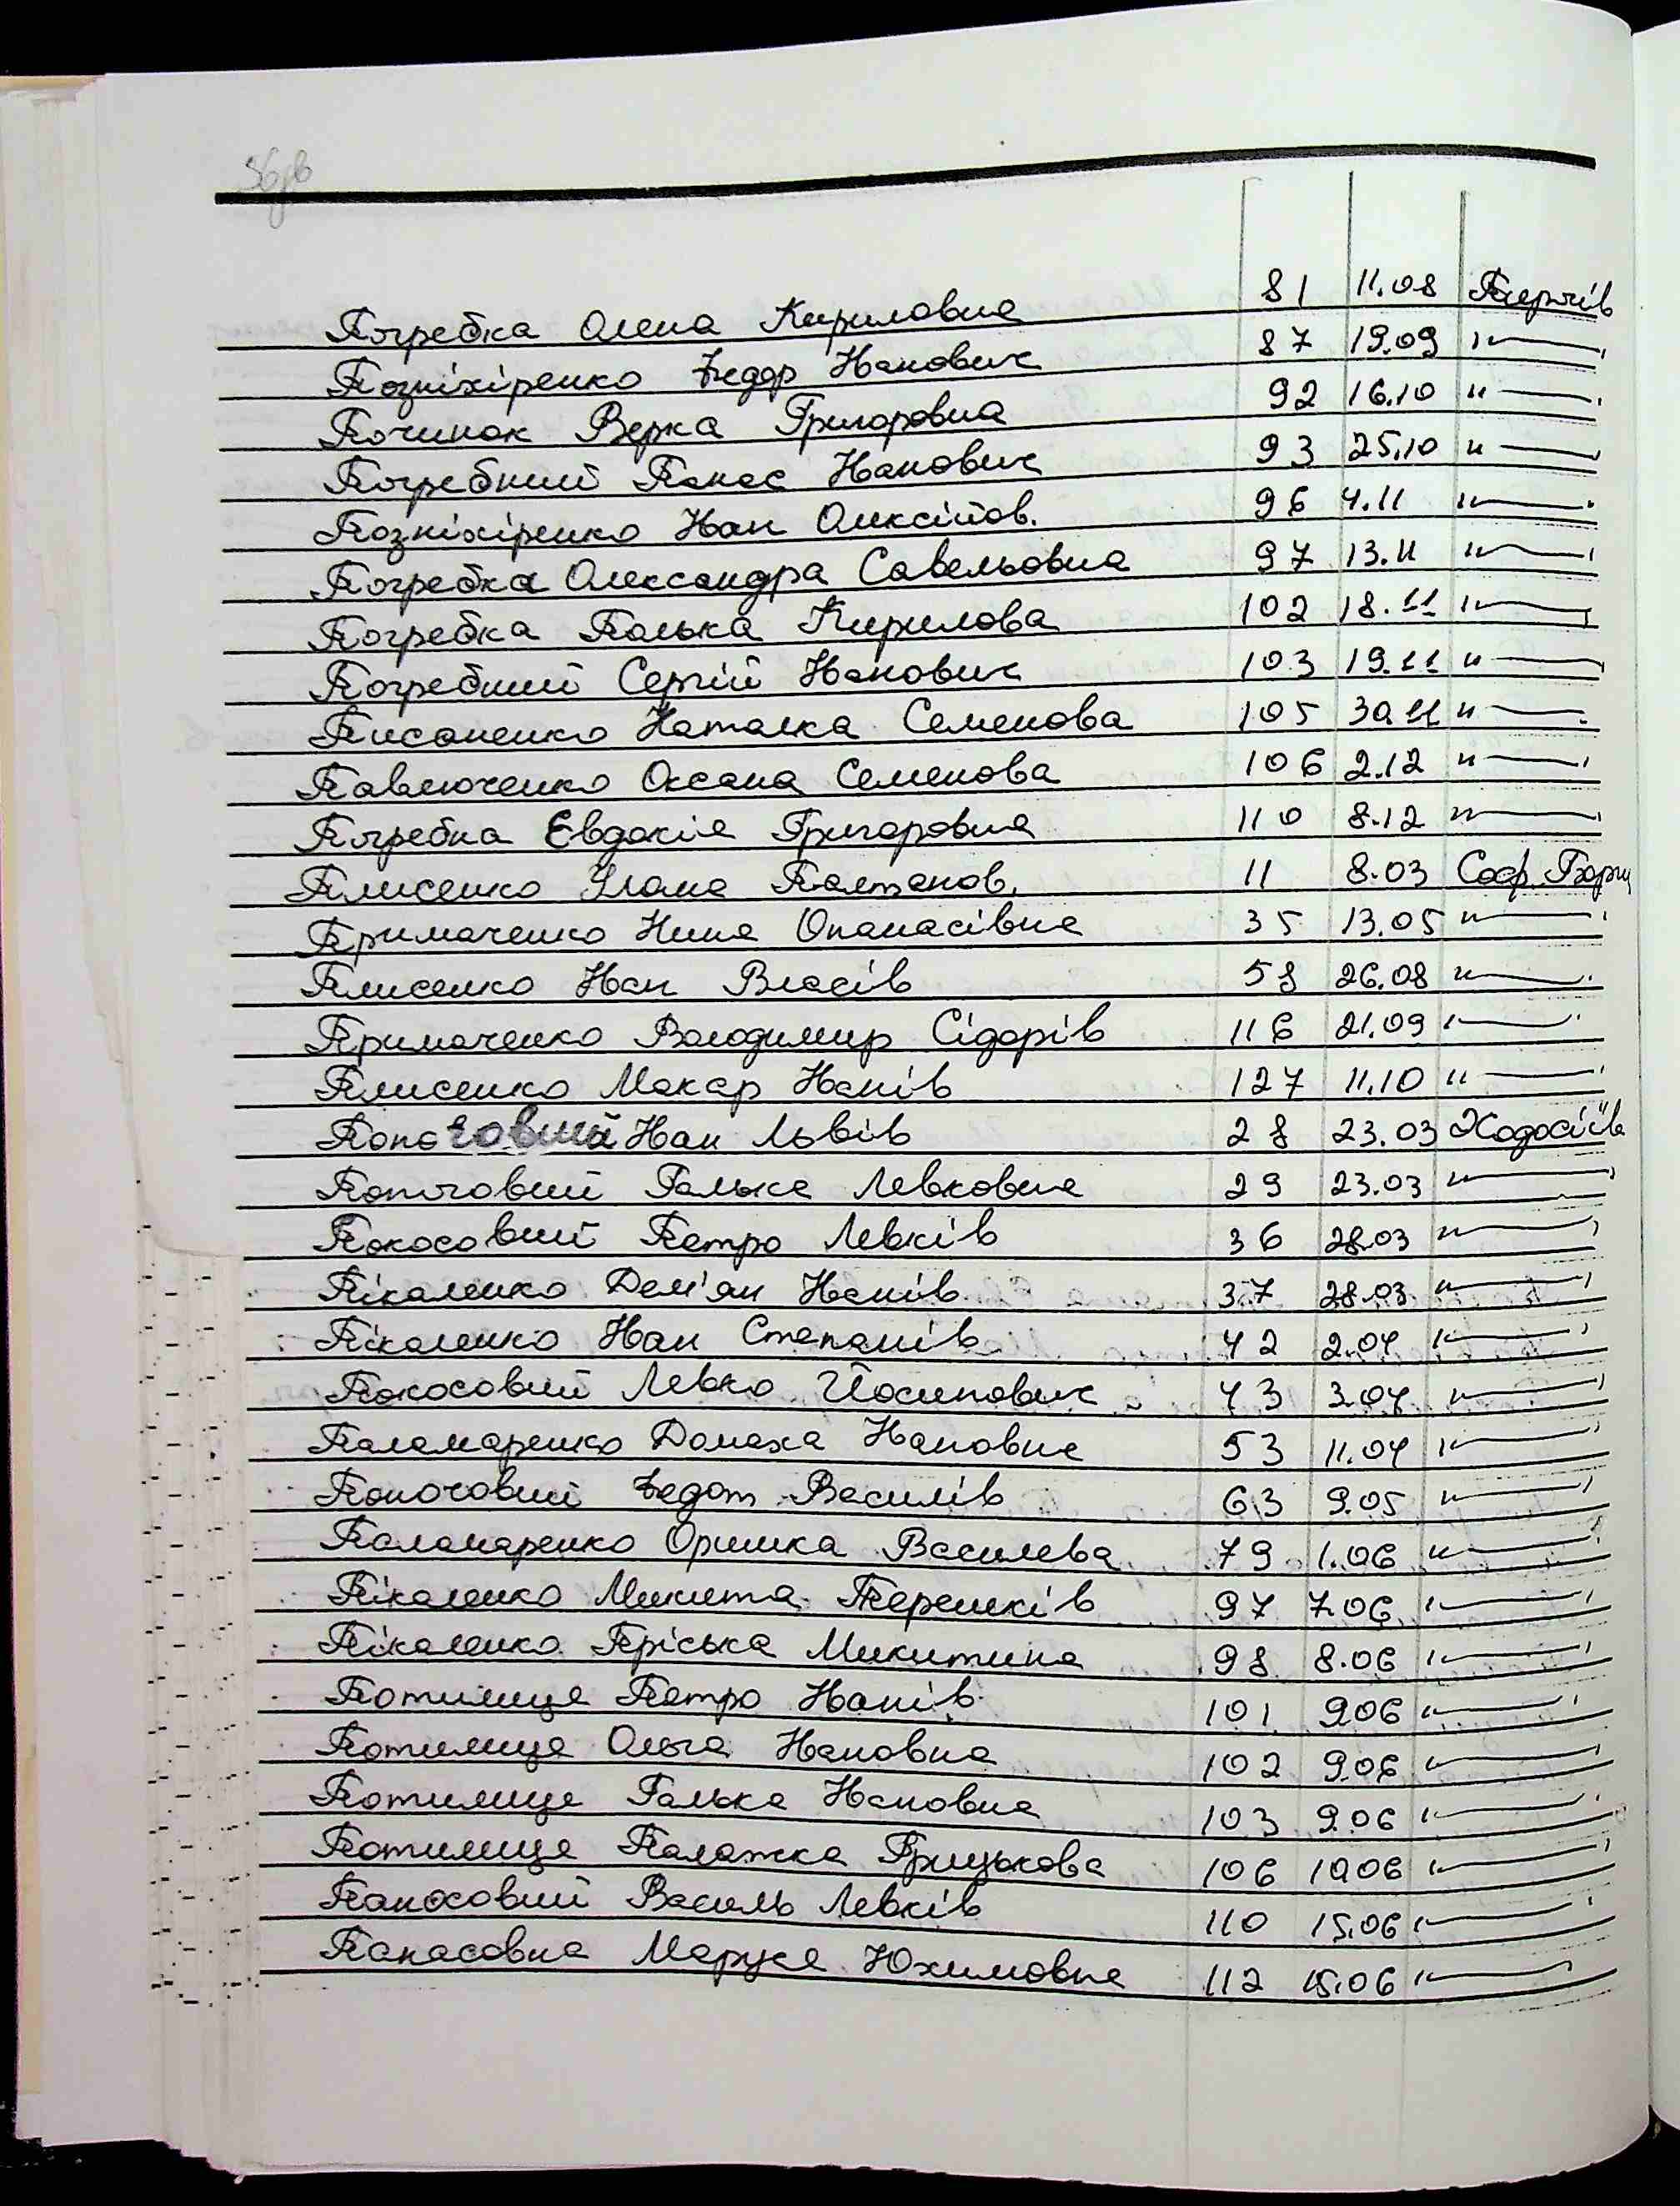 56зв
Погребна Олена Кириловна 81 11.08 Пирогів
Позніхіренко Федор Іванович 87 19.09 "—"
Починок Верка Григоровна 92 16.10 "—"
Погребний Панас Іванович 93 25.10 "—"
Позніхіренко Іван Олексійов. 96 4.11 "—"
Погребна Олександра Савельовна 97 13.11 "—"
Погребна Палька Кирилова 102 18.11 "—"
Погребний Сергій Іванович 103 19.11 "—"
Писаненко Наталка Семенова 105 30.11 "—"
Павлюченко Оксана Семенова 106 2.12 "—"
Погребна Євдокія Григоровна 110 8.12 "—"
Плисенко Уляна Платонов. 11 8.03 Соф. Борщ
Примаченко Нина Опанасівна 35 13.05 "—"
Плисенко Іван Власів 58 26.08 "—"
Примаченко Володимир Сідорів 116 21.09 "—"
Плисенко Макар Іванів 127 11.10 "—"
Попоговий Іван Львів 28 23.03 Ходосіїв
Попоговий Галька Левковна 29 23.03 "—"
Покосовий Петро Левків 36 28.03 "—"
Пікаленко Дем'ян Іванів 37 28.03 "—"
Пікаленко Іван Степанів 42 2.04 "—"
Покосовий Левко Йосипович 43 3.04 "—"
Паламаренко Домаха Івановна 53 11.04 "—"
Попоговий Федот Василів 63 9.05 "—"
Паламаренко Оришка Василева 79 1.06 "—"
Пікаленко Микита Терешків 97 7.06 "—"
Пікаленко Пріська Микитина 98 8.06 "—"
Потилиця Петро Іванів 101 9.06 "—"
Потилиця Ольга Івановна 102 9.06 "—"
Потилиця Галька Івановна 103 9.06 "—"
Потилиця Палажка Грицькова 106 10.06 "—"
Папосовий Василь Левків 110 15.06 "—"
Папасовна Маруся Юхимовна 112 15.06 "—"